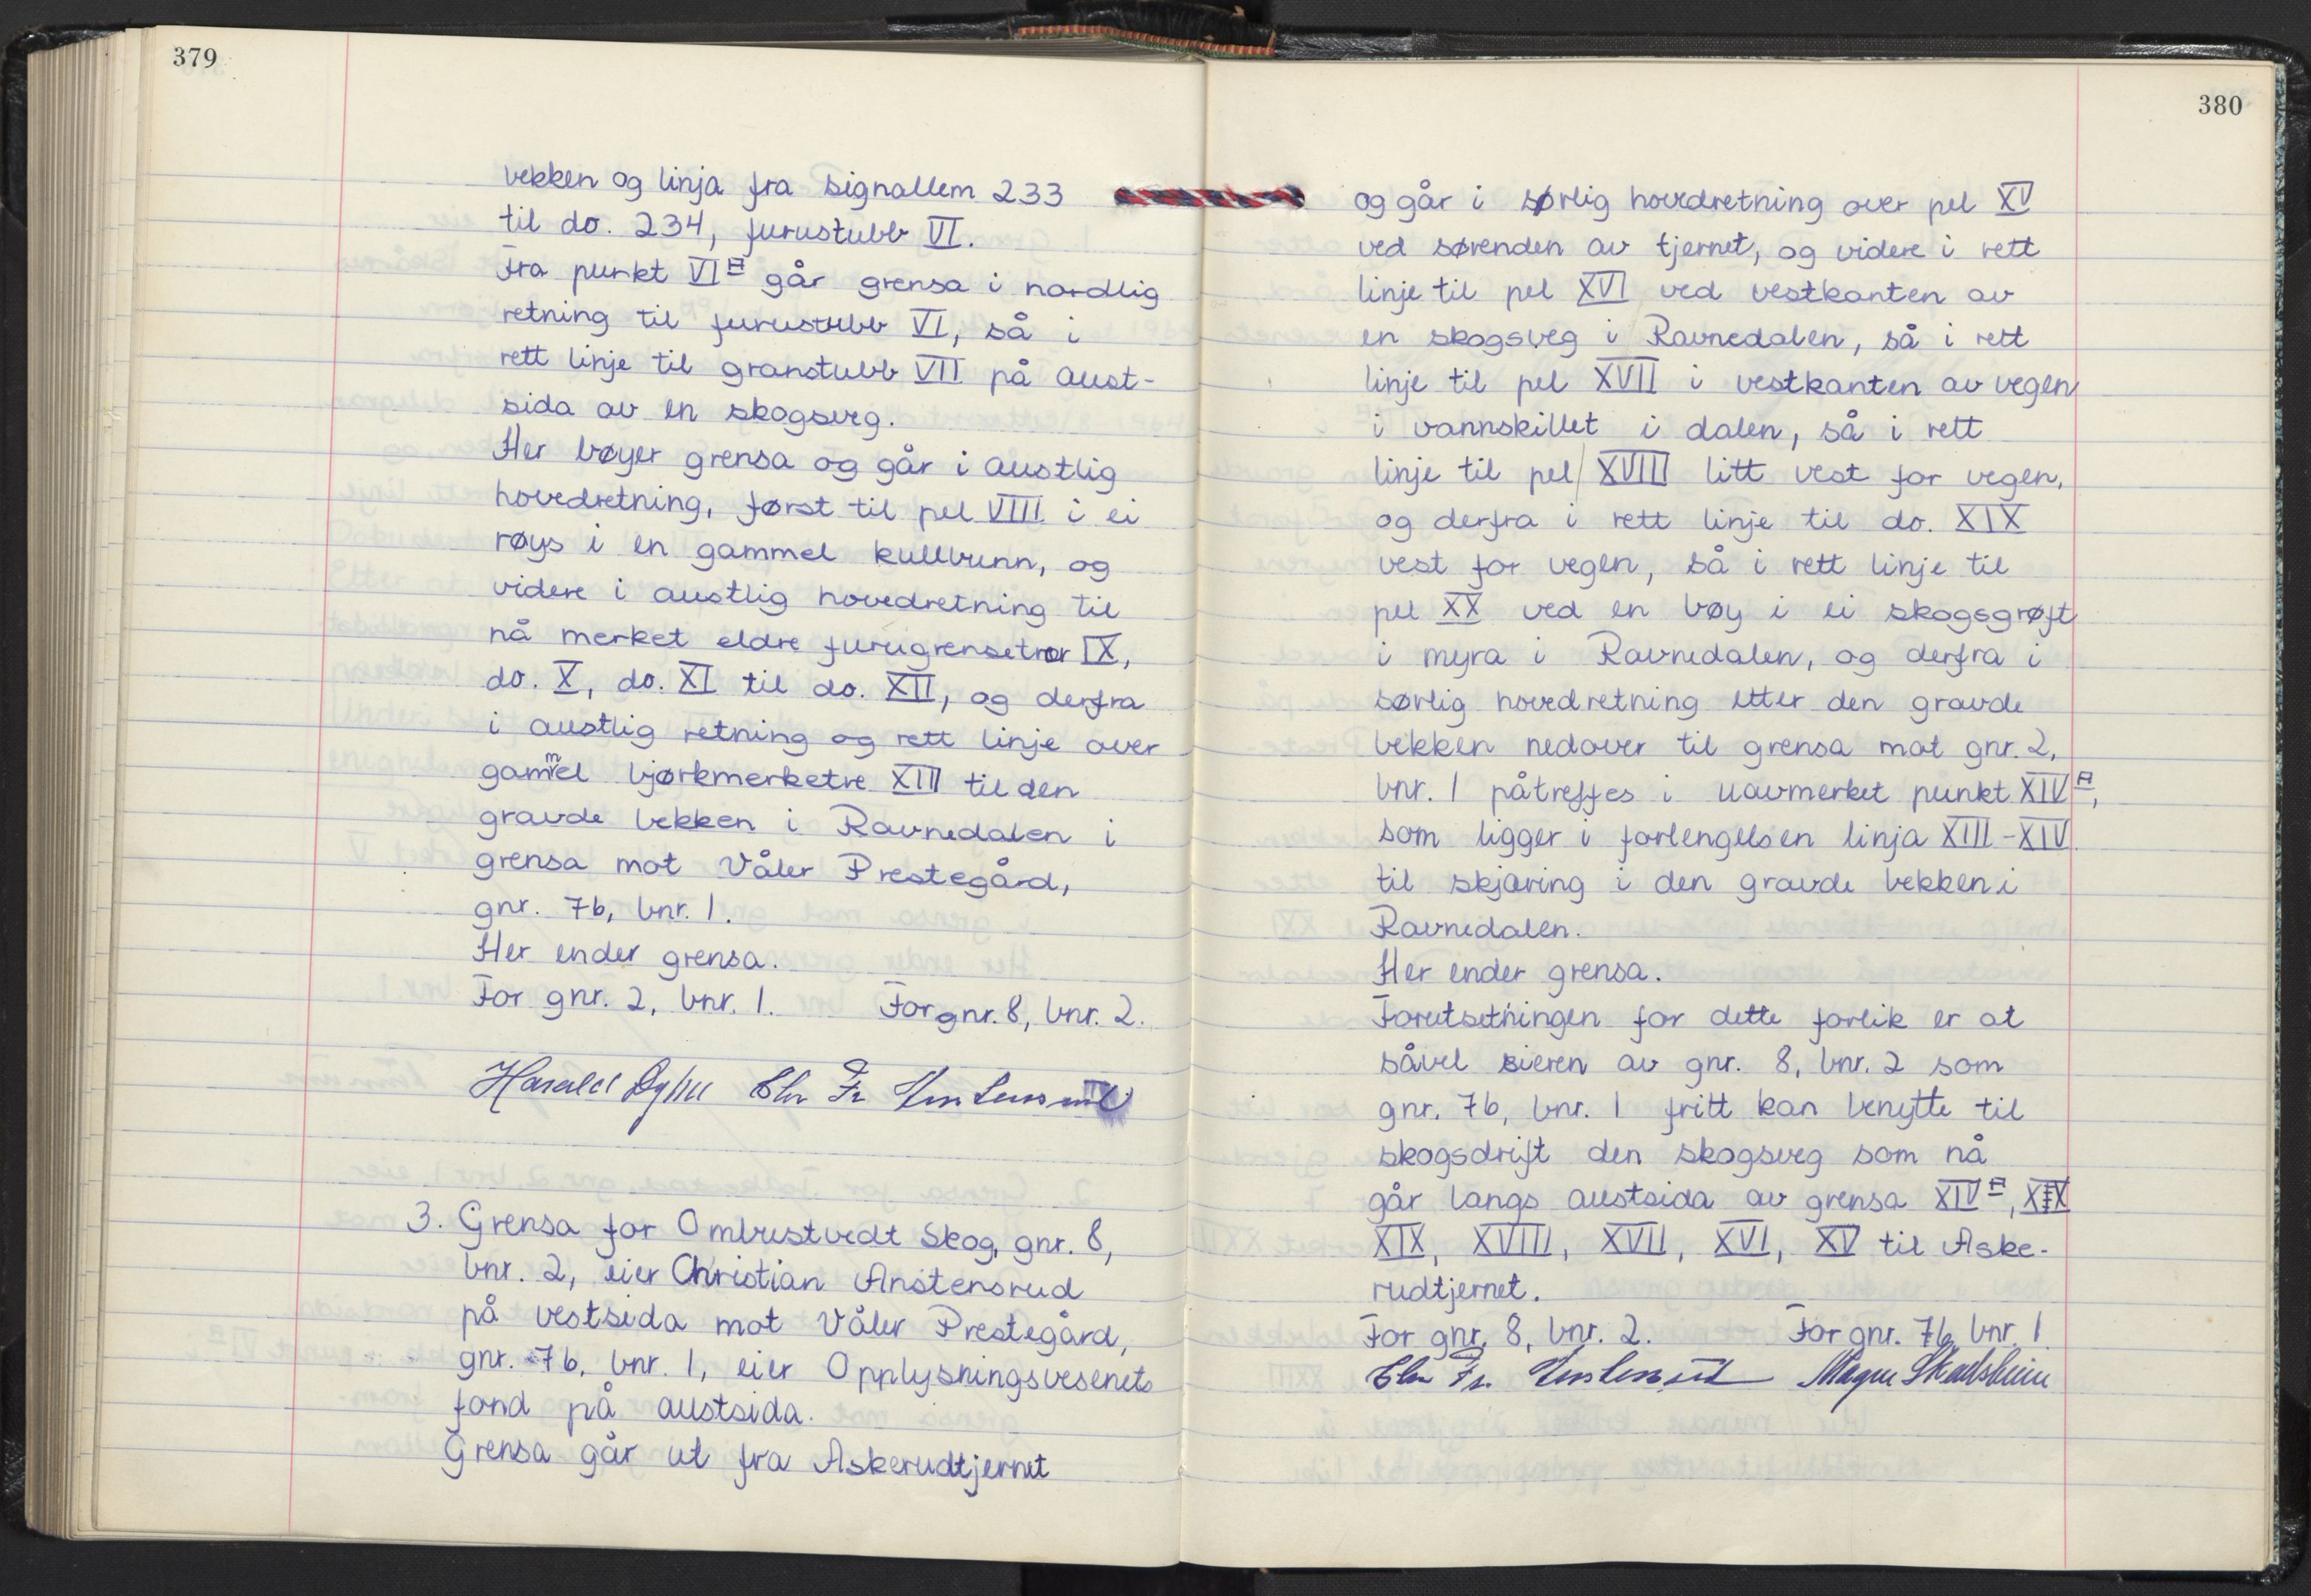 379
bekken og linja fra signallem 233
til do. 234, furustubb VI.
Fra punkt VIᴱ går grensa i nordlig
retning til furustubb VI, så i
rett linje til granstubb VII på aust-
sida av en skogsveg.
Her bøyer grensa og går i austlig
hovedretning, først til pel VIII i ei
røys i en gammel kullbunn, og
videre i austlig hovedretning til
nå merket eldre furugrensetrær IX,
do. X, do. XI til do. XII, og derfra
i austlig retning og rett linje over
gammel bjørkmerketre XIII til den
gravde bekken i Ravnedalen i
grensa mot Våler Prestegård,
gnr. 76, bnr. 1.
Her ender grensa.
For gnr. 2, bnr. 1. For gnr. 8, bnr. 2.
Harald Chr Fr Anstensrud
3. Grensa for Ombustvedt Skog, gnr. 8,
bnr. 2, eier Christian Anstensrud
på vestsida mot Våler Prestegård,
gnr. 76, bnr. 1, eier Opplysningsvesenets
fond på austsida.
Grensa går ut fra Askerudtjernet
380
og går i sørlig hovedretning over pel XV
ved sørenden av tjernet, og videre i rett
linje til pel XVI ved vestkanten av
en skogsveg i Ravnedalen, så i rett
linje til pel XVII i vestkanten av vegen
i vannskillet i dalen, så i rett
linje til pel XVIII litt vest for vegen,
og derfra i rett linje til do. XIX
vest for vegen, så i rett linje til
pel XX ved en bøy i ei skogsgrøft
i myra i Ravnedalen, og derfra i
sørlig hovedretning etter den gravde
bekken nedover til grensa mot gnr. 2,
bnr. 1 påtreffes i uavmerket punkt XIVᴱ,
som ligger i forlengelsen linja XIII - XIV
til skjæring i den gravde bekken i
Ravnedalen.
Her ender grensa.
Forutsetningen for dette forlik er at
såvel eieren av gnr. 8, bnr. 2 som
gnr. 76, bnr. 1 fritt kan benytte til
skogsdrift den skogsveg som nå
går langs austsida av grensa XIVᴱ, XX
XIX, XVIII, XVII, XVI, XV til Aske-
rudtjernet.
For gnr. 8, bnr. 2. For gnr. 76, bnr. 1
Chr Fr. Anstensrud Magne Skadsheim